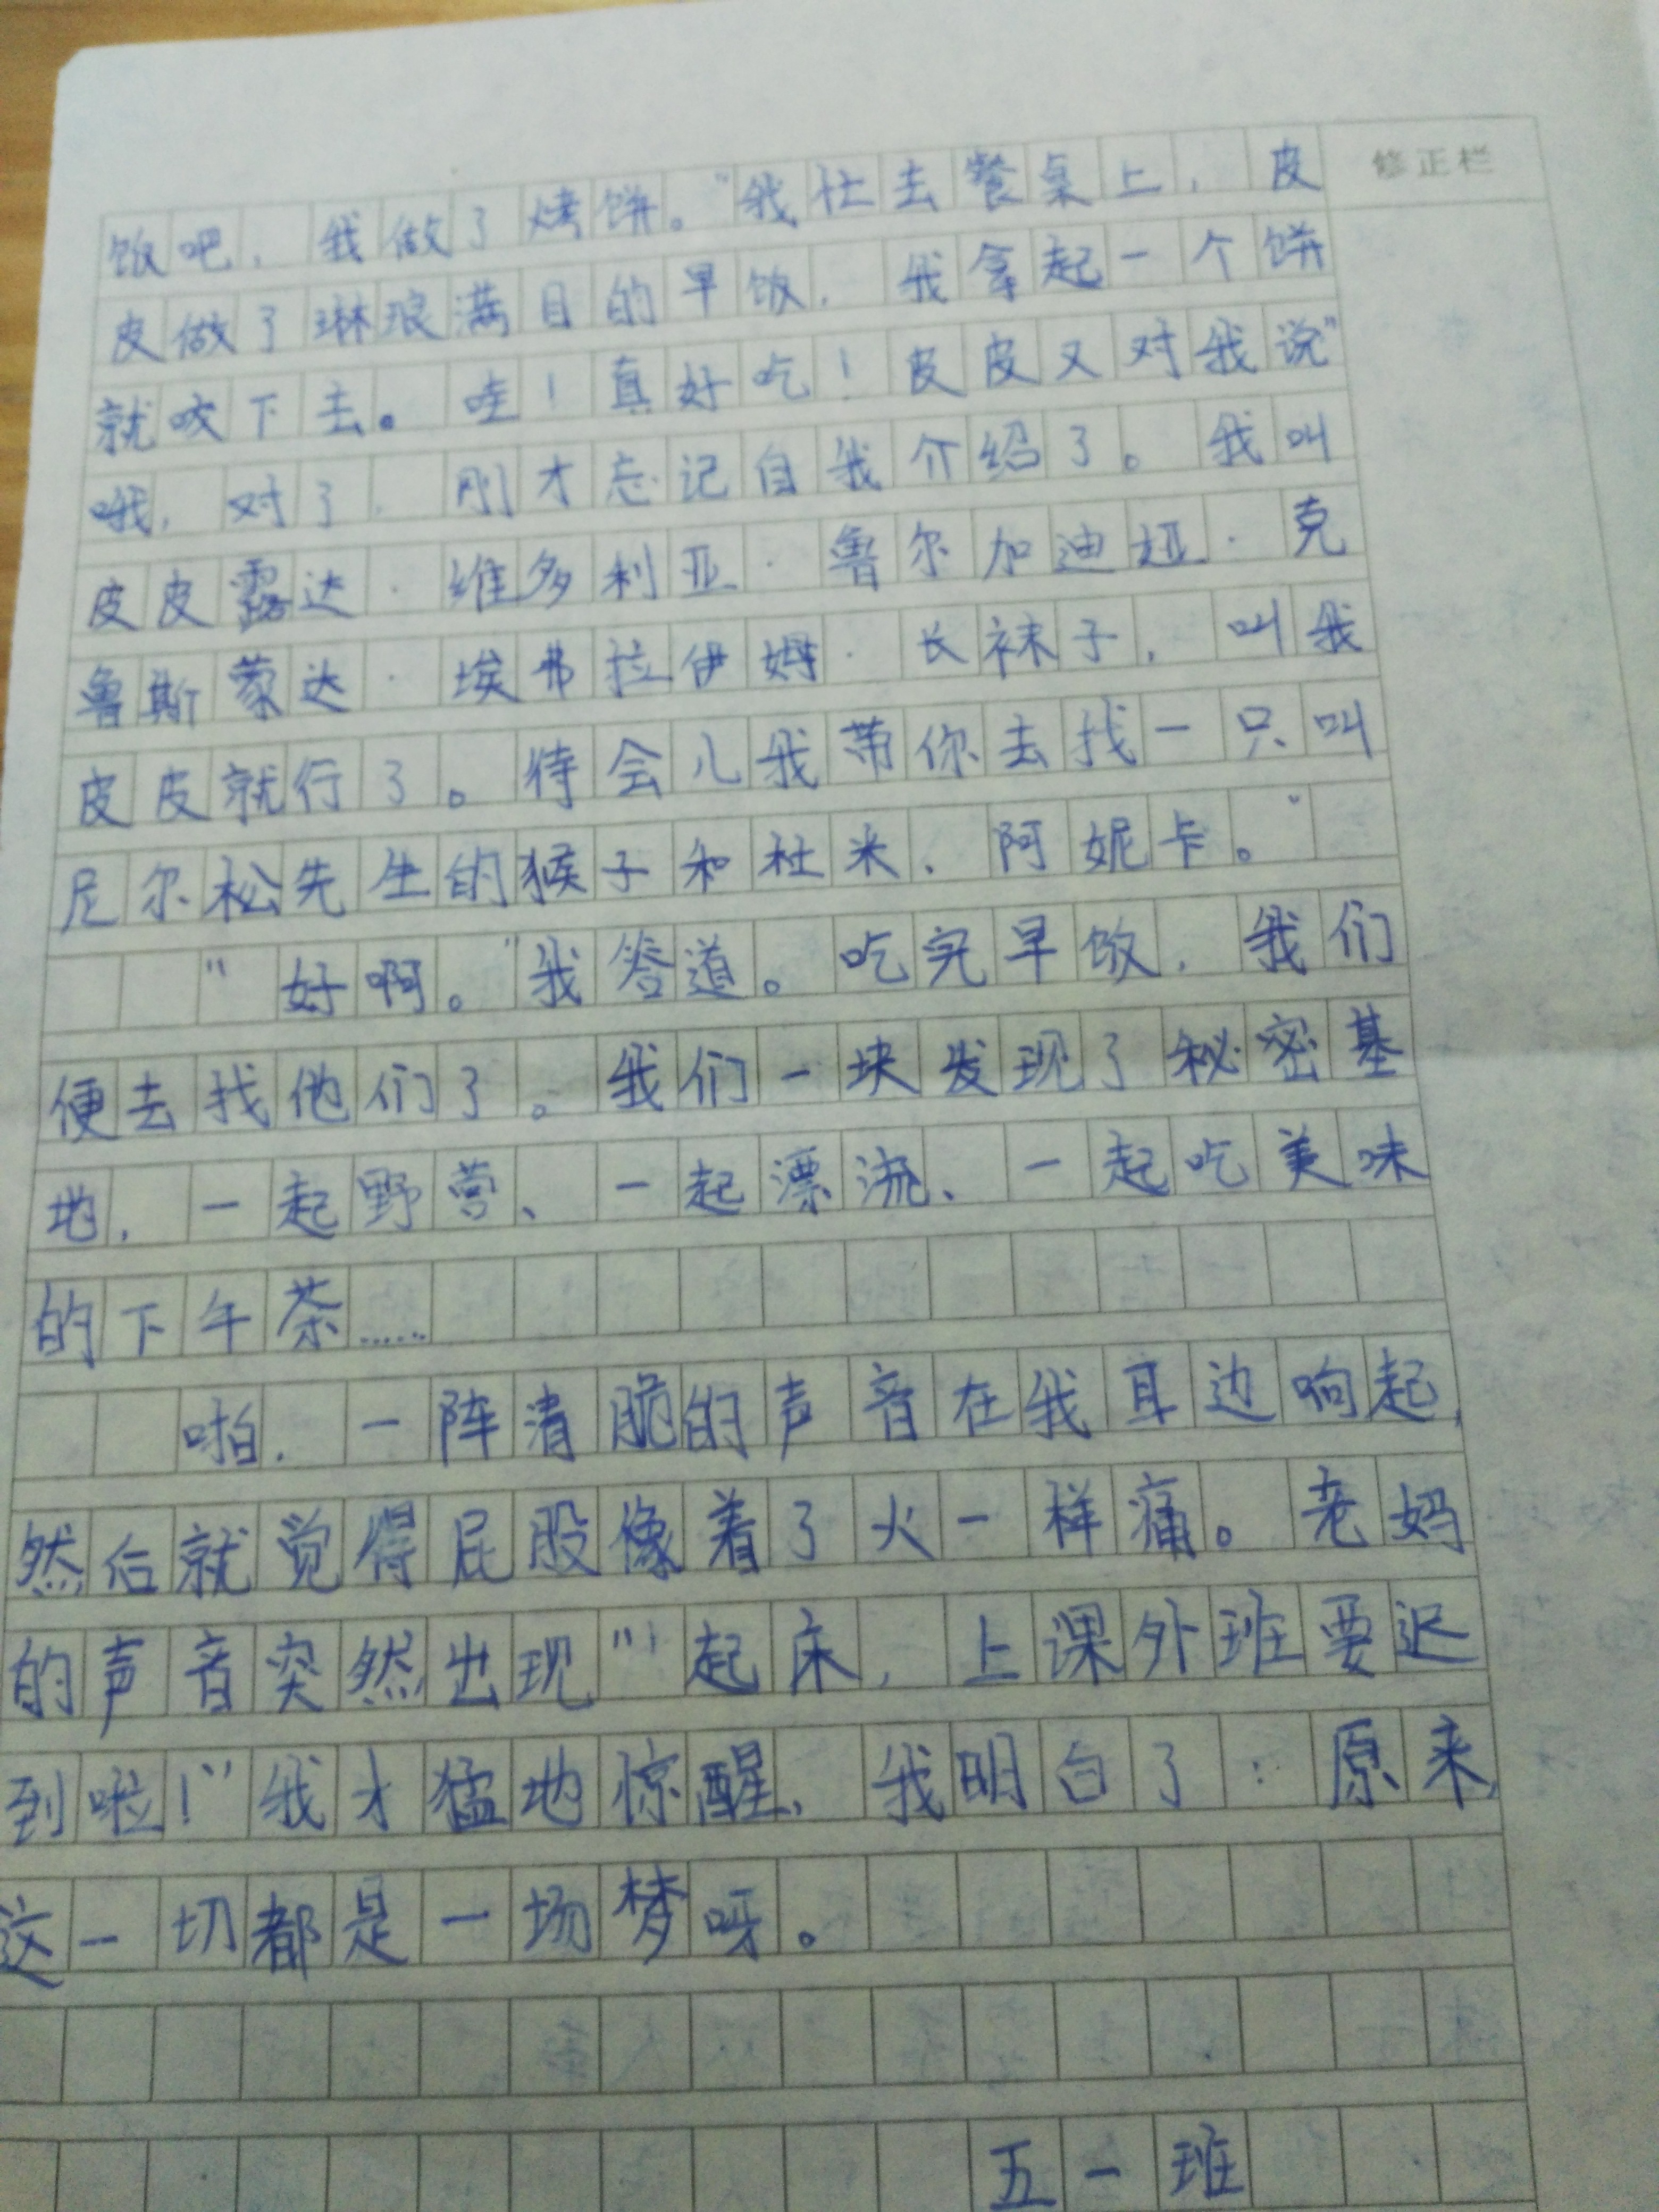 修正栏
饭吧，我做了烤饼。"我忙去餐桌上，皮
皮做了琳琅满目的早饭，我拿起一个饼
就咬下去。哇！真好吃！皮皮又对我说"
哦，对了，刚才忘记自我介绍了。我叫
皮皮露达·维多利亚·鲁尔加迪娅·克
鲁斯蒙达·埃弗拉伊姆·长袜子，叫我
皮皮就行了。待会儿我带你去找一只叫
尼尔松先生的猴子和杜米、阿妮卡。"
"好啊。"我答道。吃完早饭，我们
便去找他们了。我们一块发现了秘密基
地，一起野营、一起漂流、一起吃美味
的下午茶……
啪，一阵清脆的声音在我耳边响起，
然后就觉得屁股像着了火一样痛。老妈
的声音突然出现"起床，上课外班要迟
到啦！"我才猛地惊醒，我明白了：原来，
这一切都是一场梦呀。
五一班